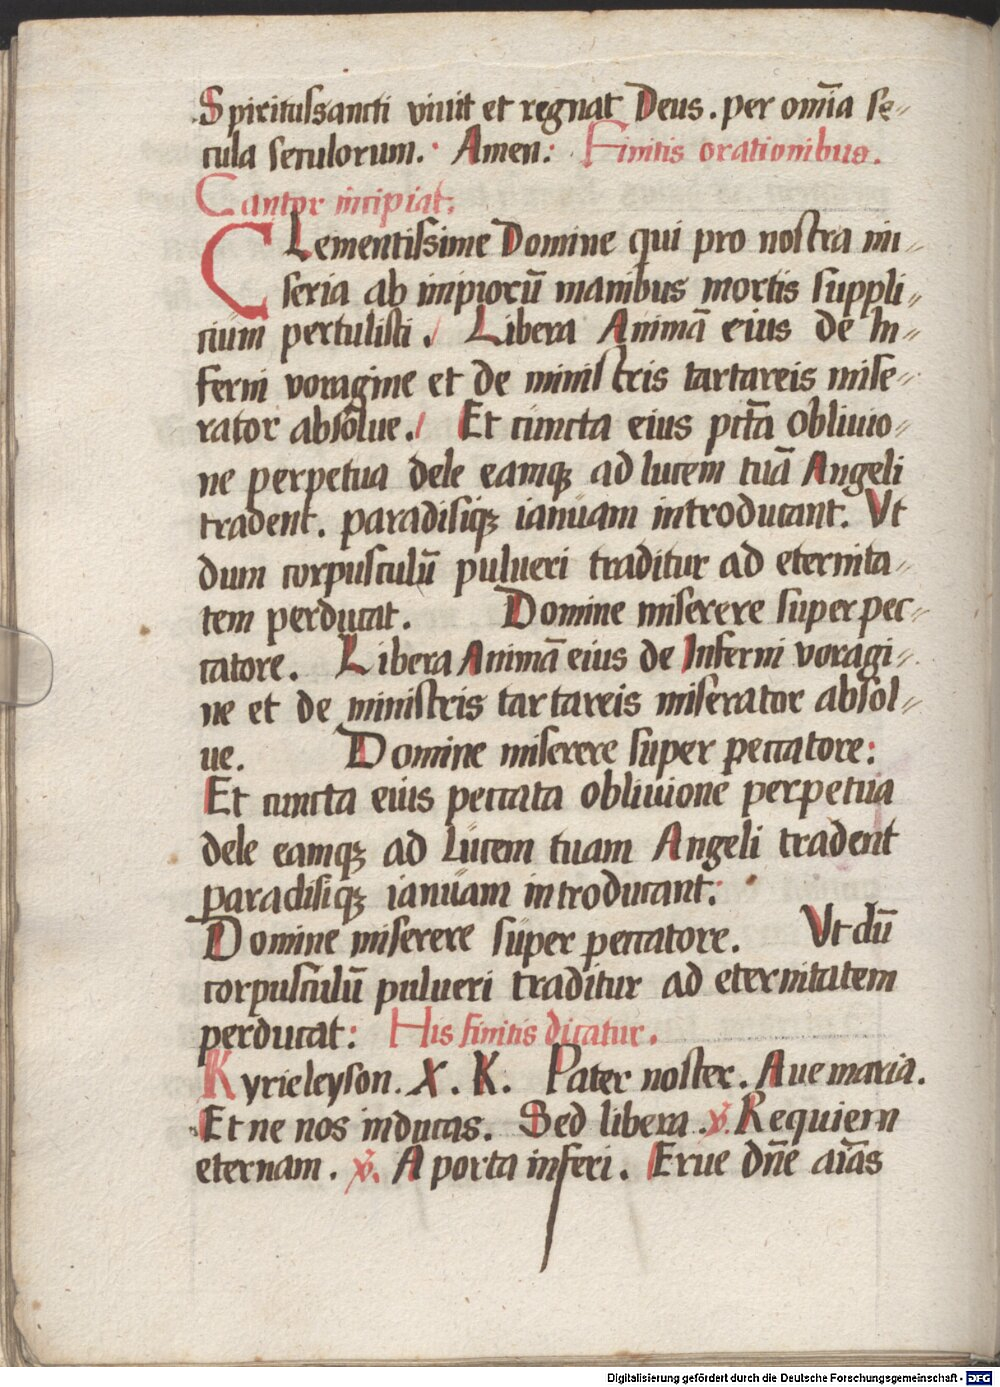 Spiritussancti viuit et regnat Deus. per om̅ia se-
cula seculorum. Amen: Finitis orationibus.
Cantor incipiat:
CLementissime Domine qui pro nostra mi-
seria ab impiorū manibus mortis suppli-
cium pertulisti. Libera Animā eius de In-
ferni voragine et de ministris tartareis mise-
rator absolue. Et cuncta eius pct̄a obliuio-
ne perpetua dele eamqꝫ ad lucem tuā Angeli
tradent. paradisiqꝫ ianuam introducant. Vt
dum corpusculū pulueri traditur ad eternita-
tem perducat. Domine miserere super pec-
catore. Libera Animā eius de Inferni voragi-
ne et de ministris tartareis miserator absol-
ue. Domine miserere super peccatore:
Et cuncta eius peccata obliuione perpetua
dele eamqꝫ ad Lucem tuam Angeli tradent
paradisiqꝫ ianuam introducant:
Domine miserere super peccatore. Vt dū
corpusculū pulueri traditur ad eternitatem
perducat: His finitis dicatur.
Kyrieleyson. X. K. Pater noster. Aue maria.
Et ne nos inducas. Sed libera. ℣. Requiem
eternam. ℣. A porta inferi. Erue dn̄e aīas
Digitalisierung gefördert durch die Deutsche Forschungsgemeinschaft - DFG